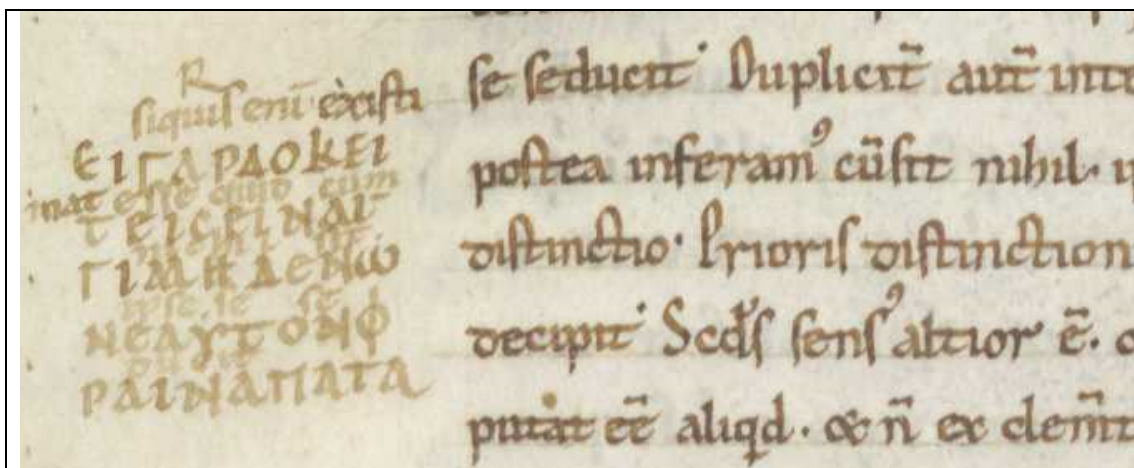 R
siquis eni existi
ΕΙΓΑΡΔΟΚΕΙ
mat esse quid cum
ΤΕΙCΕΙΝΑΙ
ΓΙΜΗΔΕΝΩ
ipse se
ΝΕΑΥΤΟΝΦ
ΡΑΙΝΑΠΑΤΑ
se seducit Duplicit̄ aut̄ inte
postea inferamꝰ cū sit nihil ·
distinctio · Prioris distinction
decipit Scd's sensꝰ altior ē .
putat eē aliqd · & n̄ ex clem̄t